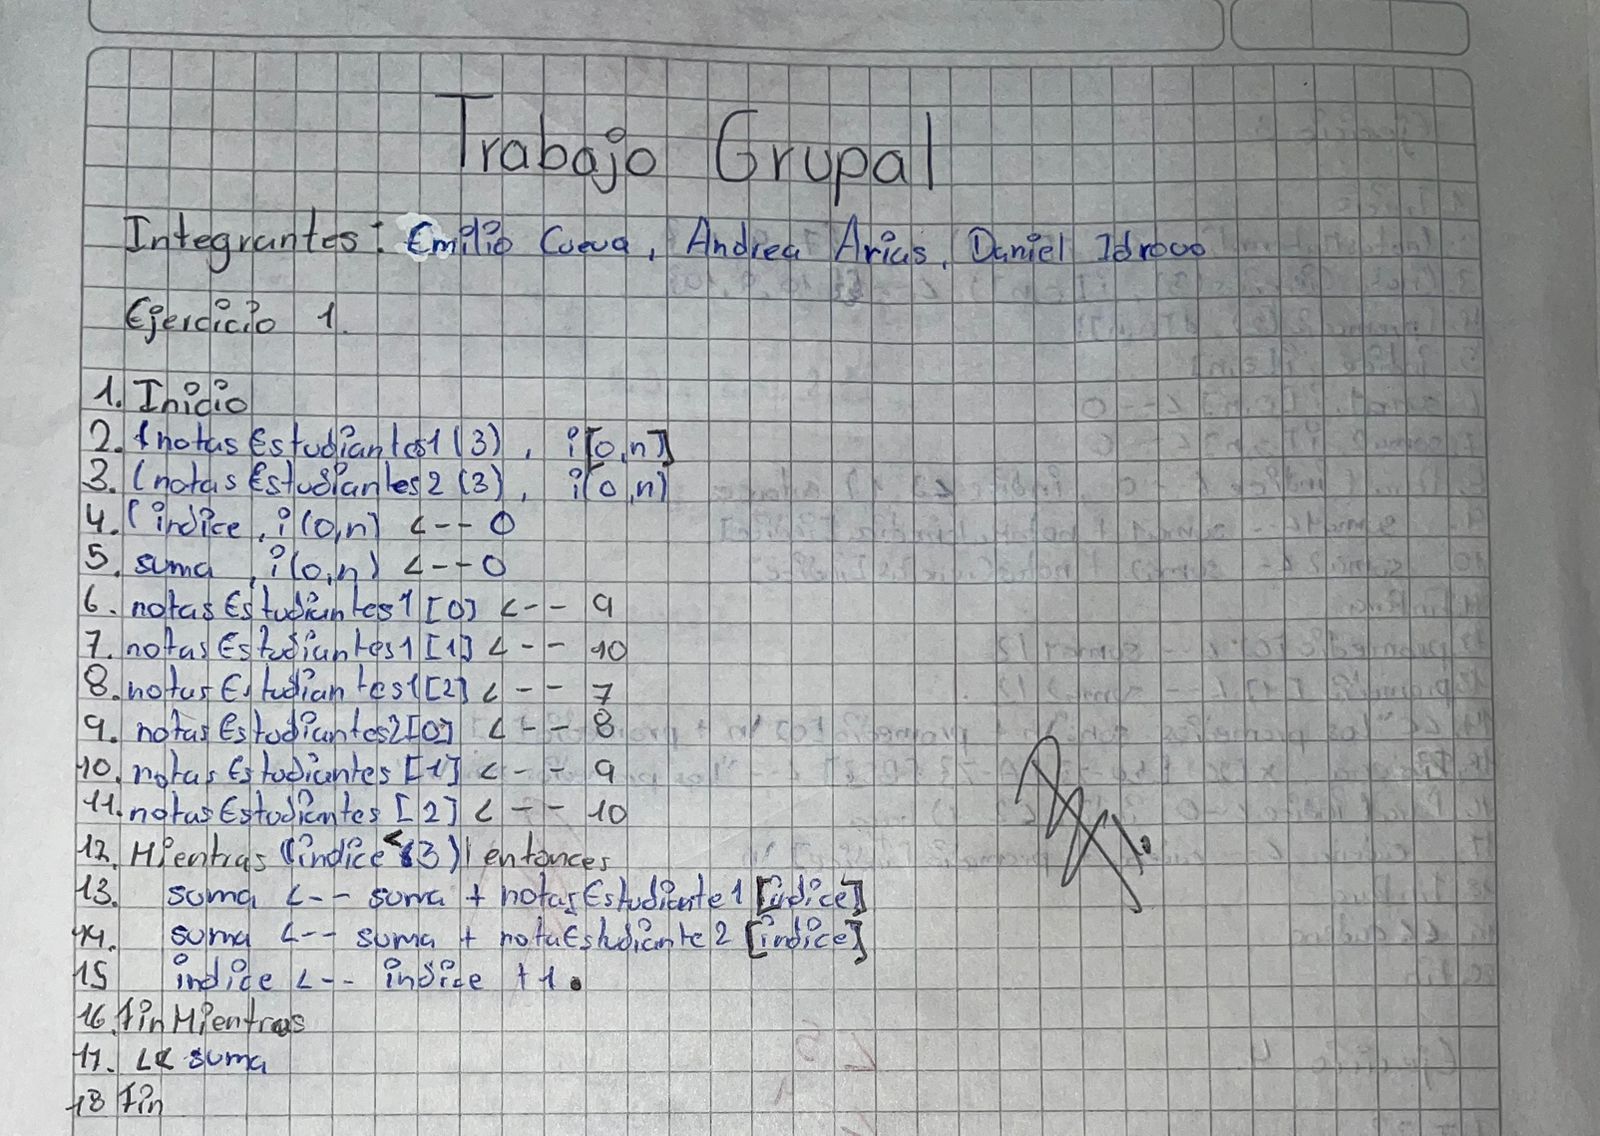 Trabajo Grupal
Integrantes: Emilio Cueva, Andrea Arias, Daniel Idrovo
Ejercicio 1.
1. Inicio
2. (notasEstudiantes1(3), i[0,n]
3. (notasEstudiantes2(3), i(0,n)
4. (indice, i(0,n] <-- 0
5. suma, i(0,n) <-- 0
6. notasEstudiantes1[0] <-- 9
7. notasEstudiantes1[1] <-- 10
8. notasEstudiantes1[2] <-- 7
9. notasEstudiantes2[0] <-- 8
10. notasEstudiantes[1] <-- 9
11. notasEstudiantes[2] <-- 10
12. Mientras (indice < 3) entonces
13. suma <-- suma + notasEstudiante1[indice]
14. suma <-- suma + notaEstudiante2[indice]
15 indice <-- indice +1.
16. FinMientras
17. << suma
18 Fin